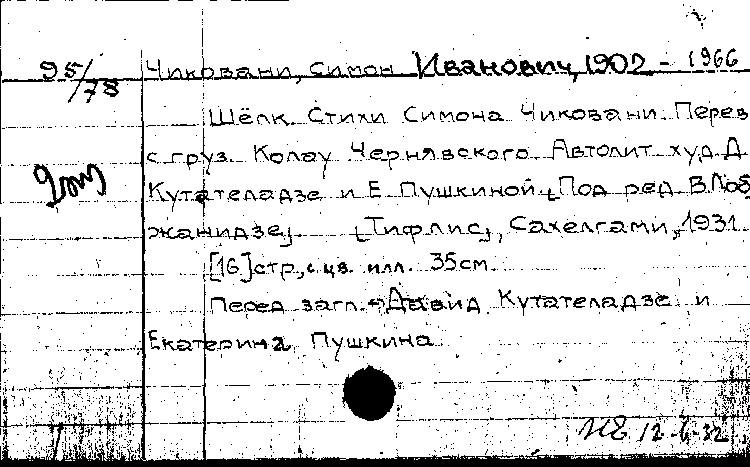 95/78 Чиковани, Симон Иванович, 1902 - 1966
Шёлк. Стихи Симона Чиковани. Перев
с груз. Колау Чернявского. Автолит. худ. Д
Кутателадзе и Е Пушкиной. [Под ред. В. Лоб
жанидзе]. [Тифлис], Сахелгами, 1931.
[16] стр., с цв. илл. 35 см.
Перед загл.: Давид Кутателадзе и
Екатерина Пушкина